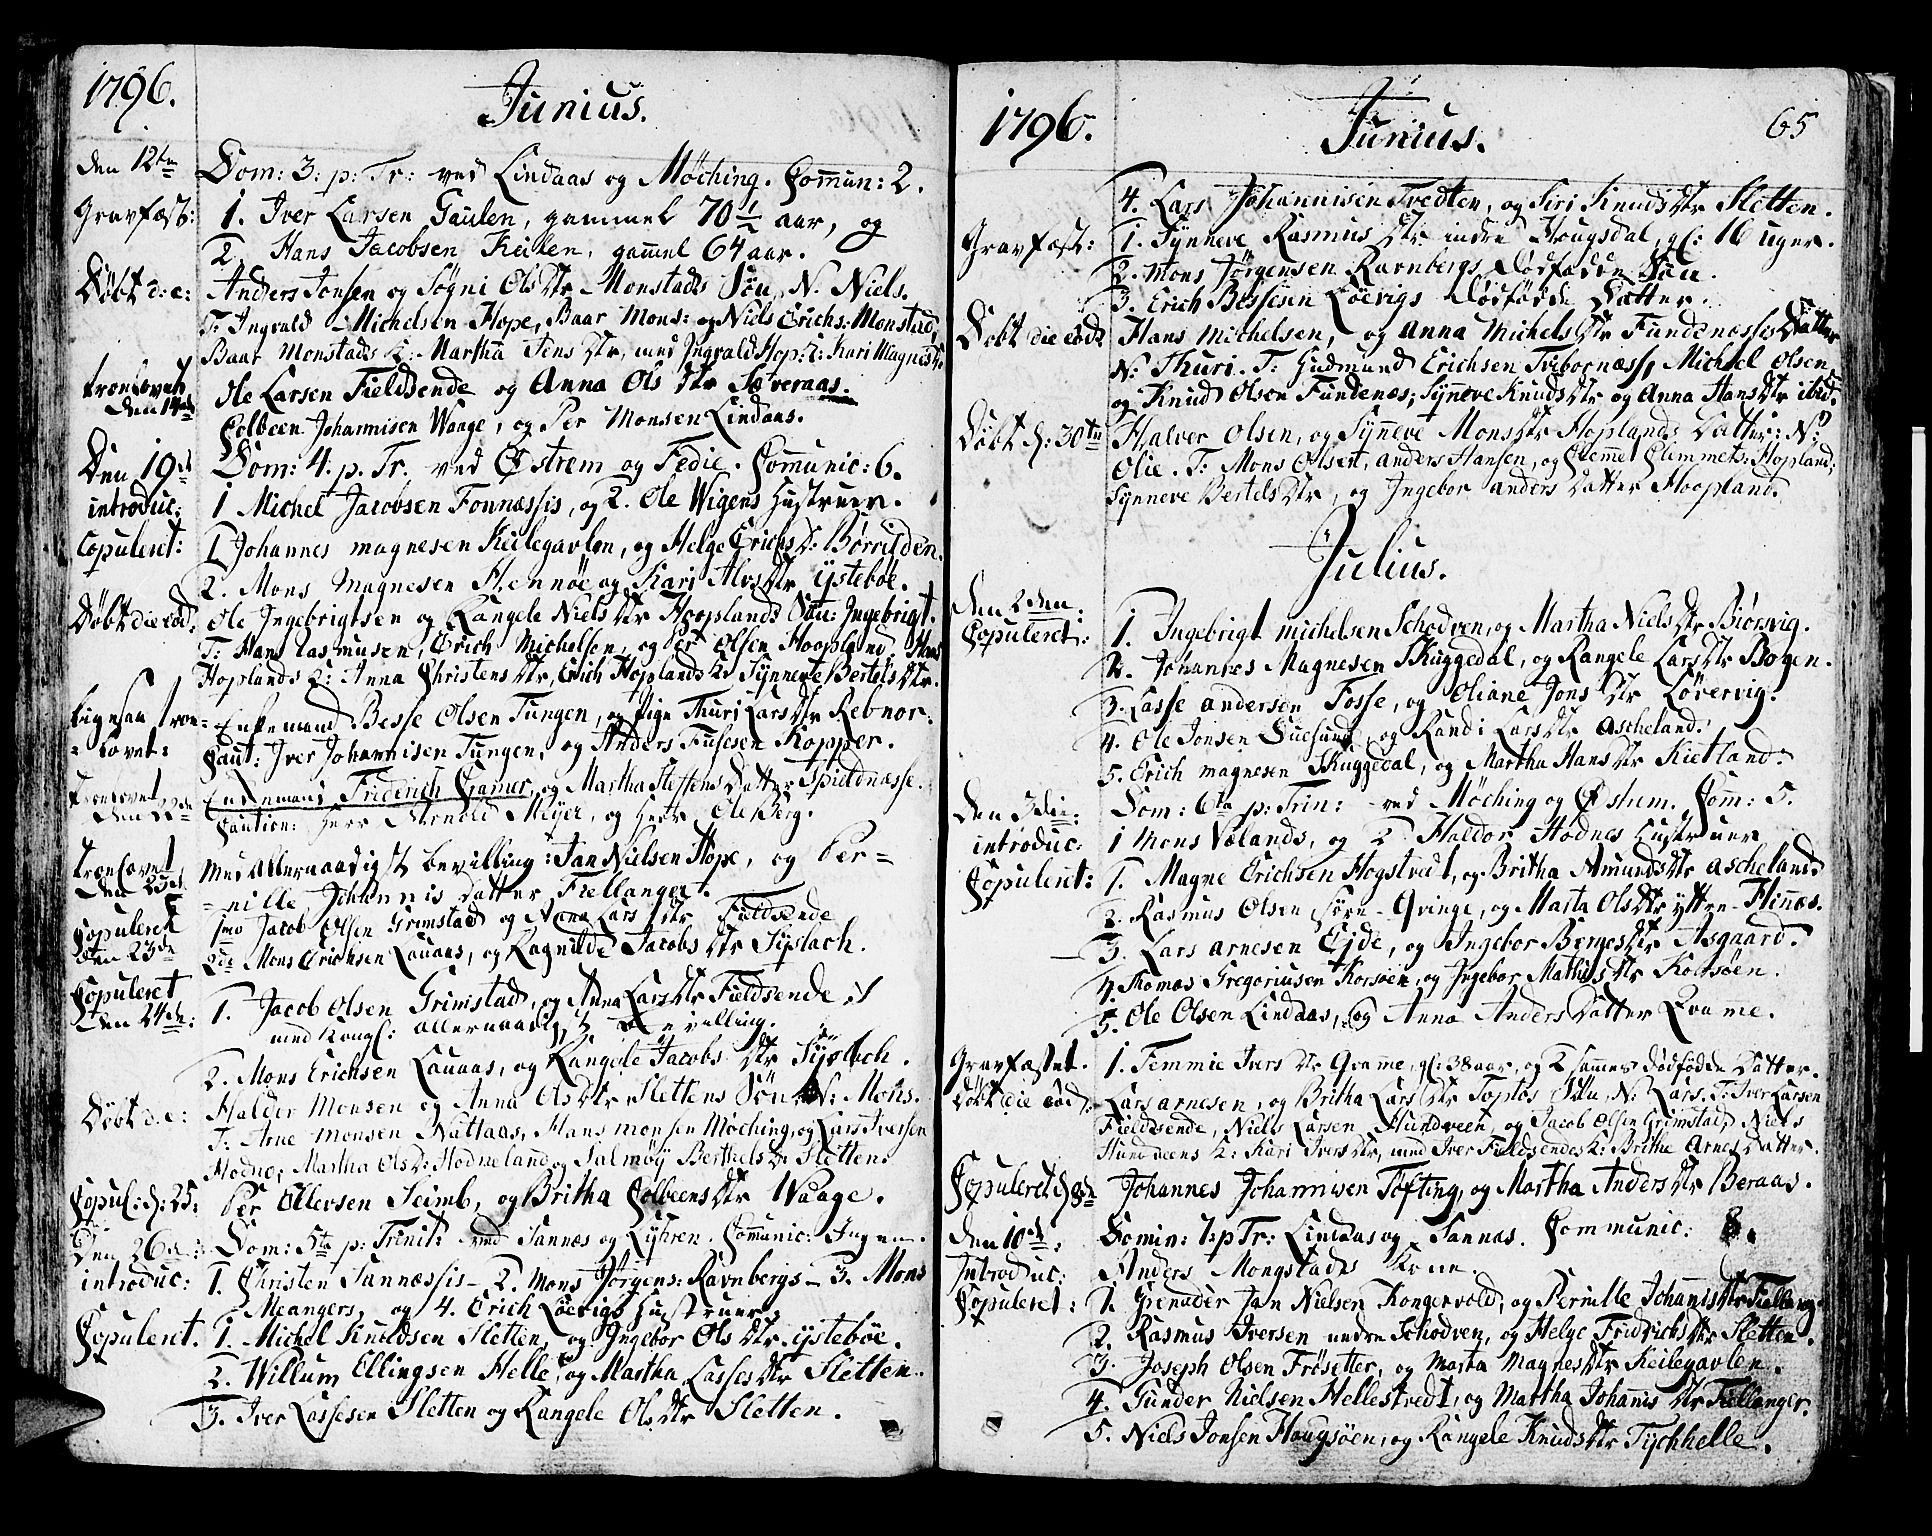 1796.
Junius.
den 12te Dom: 3: p: Tr: ved Lindaas og Møching. Commun: 2.
Gravfæst: 1. Iver Larsen Gaulen, gammel 70 1/2 aar, og
2. Hans Jacobsen Keilen, gamel 64 aar.
Døbt d: e: Anders Jonsen og Søgni Ols Dtr Monstads Søn, N. Niels.
T: Ingvald Michelsen Hope, Baar Mons: og Niels Erichs: Monstad,
Baar Monstads K: Martha Jens Dtr, med Ingvald Hop: K: Kari Magnes D.
trolovet den 14de Ole Larsen Fieldsende og Anna Ols Dtr Sæveraas.
Colbeen Johannisen Waage, og Per Monsen Lindaas.
Den 19de Dom: 4. p. Tr. ved Østrem og Fedie. Communic: 6.
introduc: 1 Michel Jacobsen Fonnæssis, og 2. Ole Wigens Hustruer.
Copuleret: 1 Johannes Magnesen Keilegavlen, og Helge Erichs D: Børrilden.
2. Mons Magnesen Hennøe og Kari Alvs Dtr ÿstebøe.
Døbt die eod: Ole Ingebrigtsen og Rangele Niels Dtr Hooplands Søn: Ingebrigt.
T: Hans Rasmusen, Erich Michelsen, og Per Olsen Hoopland. Hans
Hoplands K: Anna Christens Dtr, Erich Hoplands K: Synneve Bertels Dtr.
Ligesaa trolovet: Enkemand Besse Olsen Tungen, og Pige Thuri Lars Dtr Rebnor.
Caut: Iver Johannisen Tungen, og Anders Fusesen Kopper.
trolovet den 22de Enkemand Friderich Gamer, og Martha Steffens Datter Spieldnæsse.
Caution: Herr Arnold Meyer, og Herr Ole Berg.
trolovet den 23de Med Allernaadigst bevilling: Jan Nielsen Hope, og Per=
=nille Johannis Datter Fiellanger.
Copuleret den 23de 1mo Jacob Olsen Grimstad og Anna Lars Dtr Fieldsende
2do Mons Erichsen Lauaas, og Ragnilde Jacobs Dtr Sÿslach.
Copuleret den 24de: 1. Jacob Olsen Grimstad, og Anna Lars Dtr Fieldsende
med Kongl: allernaadigst Bevilling.
2. Mons Erichsen Lauaas, og Rangele Jacobs Dtr Sÿslach.
Døbt d: e: Halder Monsen og Anna Ols Dtr Slettens Søn N: Mons.
T: Arne Monsen Nattaas, Hans Monsen Møching, og Lars Iversen
Hodne, Martha Ols D: Hodneland og Salmøÿ Berthels Dtr Sletten.
Copul: d: 25: Per Ollevsen Seimb, og Britha Colbeens Dtr Waage.
Den 26de: Dom: 5ta p: Trinit: ved Sannæs og Lÿhren. Communic: Ingen.
introduc: 1. Christen Sannæssis – 2. Mons Jørgens: Ravnbergs – 3. Mons
Meangers, og 4. Erich Løevigs Hustruer.
Copuleret. 1. Michel Knudsen Sletten, og Ingebor Ols Dtr ÿstebøe.
2. Willum Ellingsen Helle, og Martha Lasses Dtr Sletten.
3. Iver Lassesen Sletten og Rangele Ols Dtr Sletten.
1796.
Junius.
65
4. Lars Johannisen Tvedten, og Siri Knuds Dtr Sletten.
Gravfæst: 1. Synneve Rasmus Dtr indre Hougsdal, gl: 16 uger.
2. Mons Jørgensen Ravnbergs Dødfødde Søn.
3. Erich Bessesen Løevigs Dødfødde Datter.
Døbt die eod: Hans Michelsen, og Anna Michels Dtr Fundenæssis Datter
N: Thuri. T: Gudmund Erichsen Sæbornæss, Michel Olsen,
og Knud Olsen Fundenæs; Synneve Knuds Dtr og Anna Hans Dtr ibid.
Døbt d: 30te Halver Olsen, og Synneve Mons Dtr Hoplands Datter: N:
Olie. T: Mons Olsen, Anders Hansen, og Clemmet Clemmets: Hopland;
Synneve Bertels Dtr, og Ingebor Anders Datter Hoopland.
Julius.
Den 2den. Copuleret: 1. Ingebrigt Michelsen Schodven, og Martha Niels Dtr Biørsvig.
2. Johannes Magnesen Skuggedal, og Rangele Lars Dtr Bogen.
3. Lasse Andersen Fosse, og Oliane Jons Dtr Løvervig.
4. Ole Jonsen Duesund, og Randi Lars Dtr Ascheland.
5. Erich Magnesen Skuggedal, og Martha Hans Dtr Kietland.
Den 3die: Dom: 6ta p: Trin: ved Møching og Østrem. Com: 5.
introduc: 1 Mons Vælands, og 2. Haldor Hodnes Hustruer
Copuleret: 1. Magne Erichsen Hogstvedt, og Britha Amunds Dtr Ascheland.
2. Rasmus Olsen søre-Qvinge, og Marta Ols Dtr ÿttre-Hinnæs.
3. Lars Arnesen Eide, og Ingebor Bernes Dtr Asgaard.
4. Thomas Gregoriusen Korsøen, og Ingebor Mathis Dtr Korsøen.
5. Ole Olsen Lindaas, og Anna Anders Datter Qvamme.
Gravfæstet. 1. Femmie Ivers Dtr Qvamme, gl: 38 aar, og 2 sammes Dødfødde Datter.
Døbt die eod: Lars Arnesen, og Britha Lars Dtr Toplos Søn, N: Lars. T: Iver Larsen
Fieldsende, Niels Larsen Hundveen, og Jacob Olsen Grimstad, Niels
Hundveens K: Kari Ivers Dtr, med Iver Fieldsendes K: Britha Arnes Datter.
Copuleret d 8de Johannes Johannisen Tofting, og Martha Anders Dtr Beraas.
Den 10de: Domin: 7: p Tr: Lindaas og Sannæs. Communic: 8.
Introduc: Anders Mongstads Kone.
Copuleret: 1. Grenader Jan Nielsen Kongevold, og Pernille Johannis Dtr Fiellang:
2. Rasmus Iversen nedre Schodven, og Helge Fridrichs Dtr Sletten.
3. Joseph Olsen Frøsetter, og Marta Magnes Dtr Keilegavlen.
4. Gunder Nielsen Hellestvedt, og Martha Johannis Dtr Fiellanger.
5. Niels Jonsen Hougsøen, og Rangele Knuds Dtr Tyschhelle.